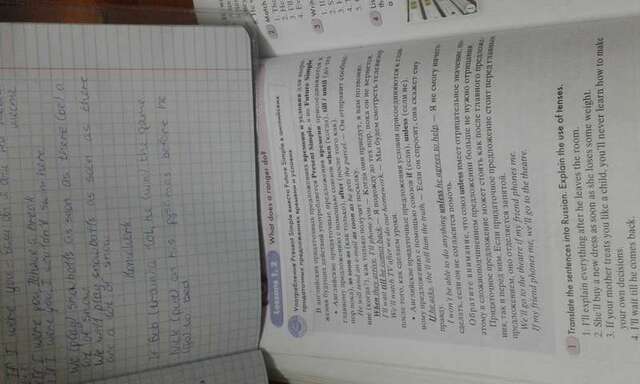 If I were you
If I were you, I'll have a break
If I were you, I wouldn't swim here
We (play) snowballs as soon as there (be) a
lot of snow.
We will play snowballs as soon as there
are a lot of snow
Homework
If Bob (train) a lot, he (win) the game
Nick (put) on his pyjamas before he
(go) to bed
Lessons 1, 2 What does a ranger do?
Употребление Present Simple вместо Future Simple в английских
придаточных предложениях времени и условия
В английских придаточных предложениях времени и условия для выра-
жения будущих действий употребляется Present Simple, а не Future Simple.
• Английские придаточные предложения времени присоединяются к
главному предложению с помощью союзов when (когда), till / until (до тех
пор пока), as soon as (как только), after (после того как).
He will send an e-mail as soon as he gets the parcel. — Он отправит сообще-
ние (когда?), как только получит посылку.
When they arrive, I'll phone you. — Когда они приедут, я вам позвоню.
I'll wait till he comes back. — Я подожду до тех пор, пока он не вернется.
We'll watch TV after we do our homework. — Мы будем смотреть телевизор
после того, как сделаем уроки.
• Английские придаточные предложения условия присоединяются к глав-
ному предложению с помощью союзов if (если), unless (если не).
If he asks, she'll tell him the truth. — Если он спросит, она скажет ему
правду.
I won't be able to do anything unless he agrees to help. — Я не смогу ничего
сделать, если он не согласится помочь.
Обратите внимание, что союз unless имеет отрицательное значение, по-
этому в сложноподчиненном предложении больше не нужно отрицания.
Придаточное предложение может стоять как после главного предложе-
ния, так и перед ним. Если придаточное предложение стоит перед главным
предложением, оно отделяется запятой.
We'll go to the theatre if my friend phones me.
If my friend phones me, we'll go to the theatre.
1 Translate the sentences into Russian. Explain the use of tenses.
1. I'll explain everything after he leaves the room.
2. She'll buy a new dress as soon as she loses some weight.
3. If your mother treats you like a child, you'll never learn how to make
your own decisions.
4. I'll wait till he comes back.
2 Match
3 Writ
4 Lis